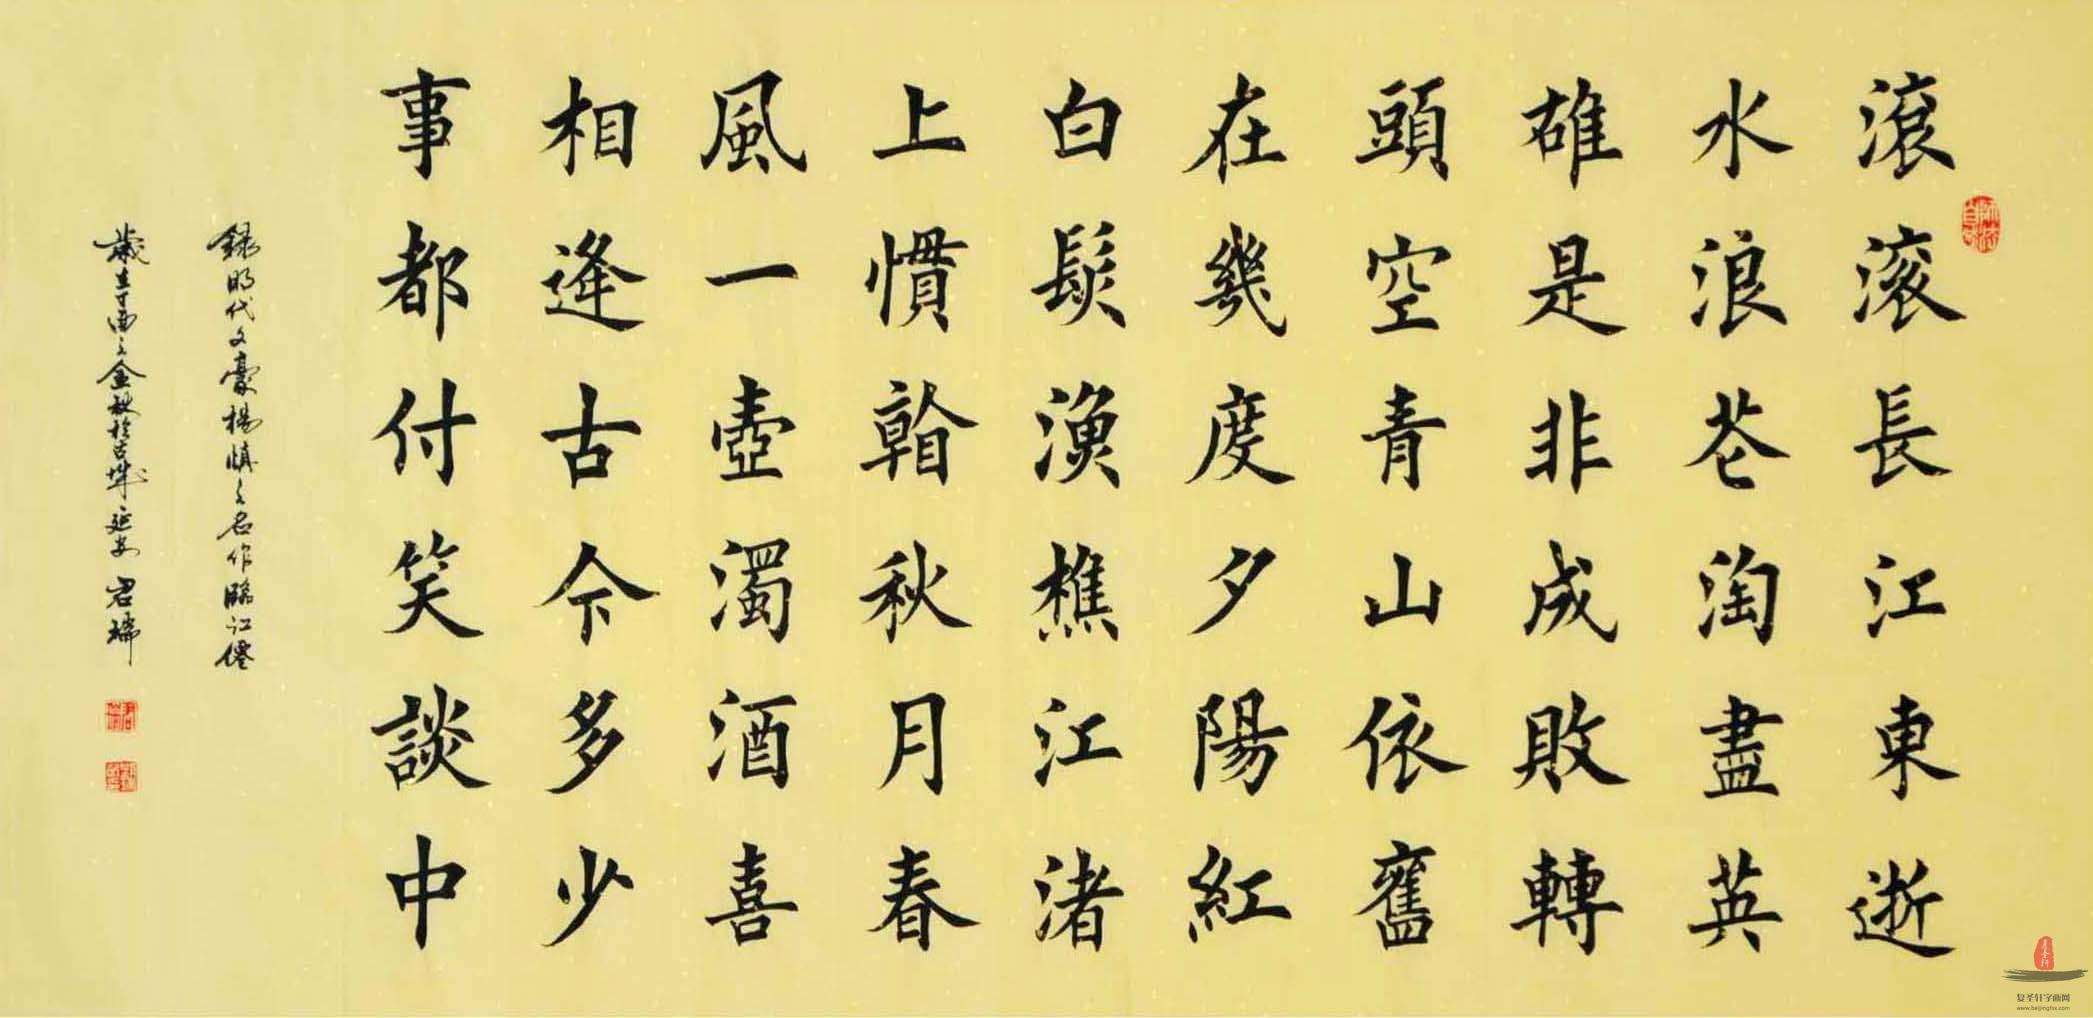 滾滚長江東逝
水浪花淘盡英
雄是非成敗轉
頭空青山依舊
在幾度夕陽紅
白髮漁樵江渚
上慣看秋月春
風一壺濁酒喜
相逢古今多少
事都付笑談中
錄明代文豪楊慎之名作臨江僊
歲在丁酉之金秋於古城延安 君瑞
复圣轩字画网